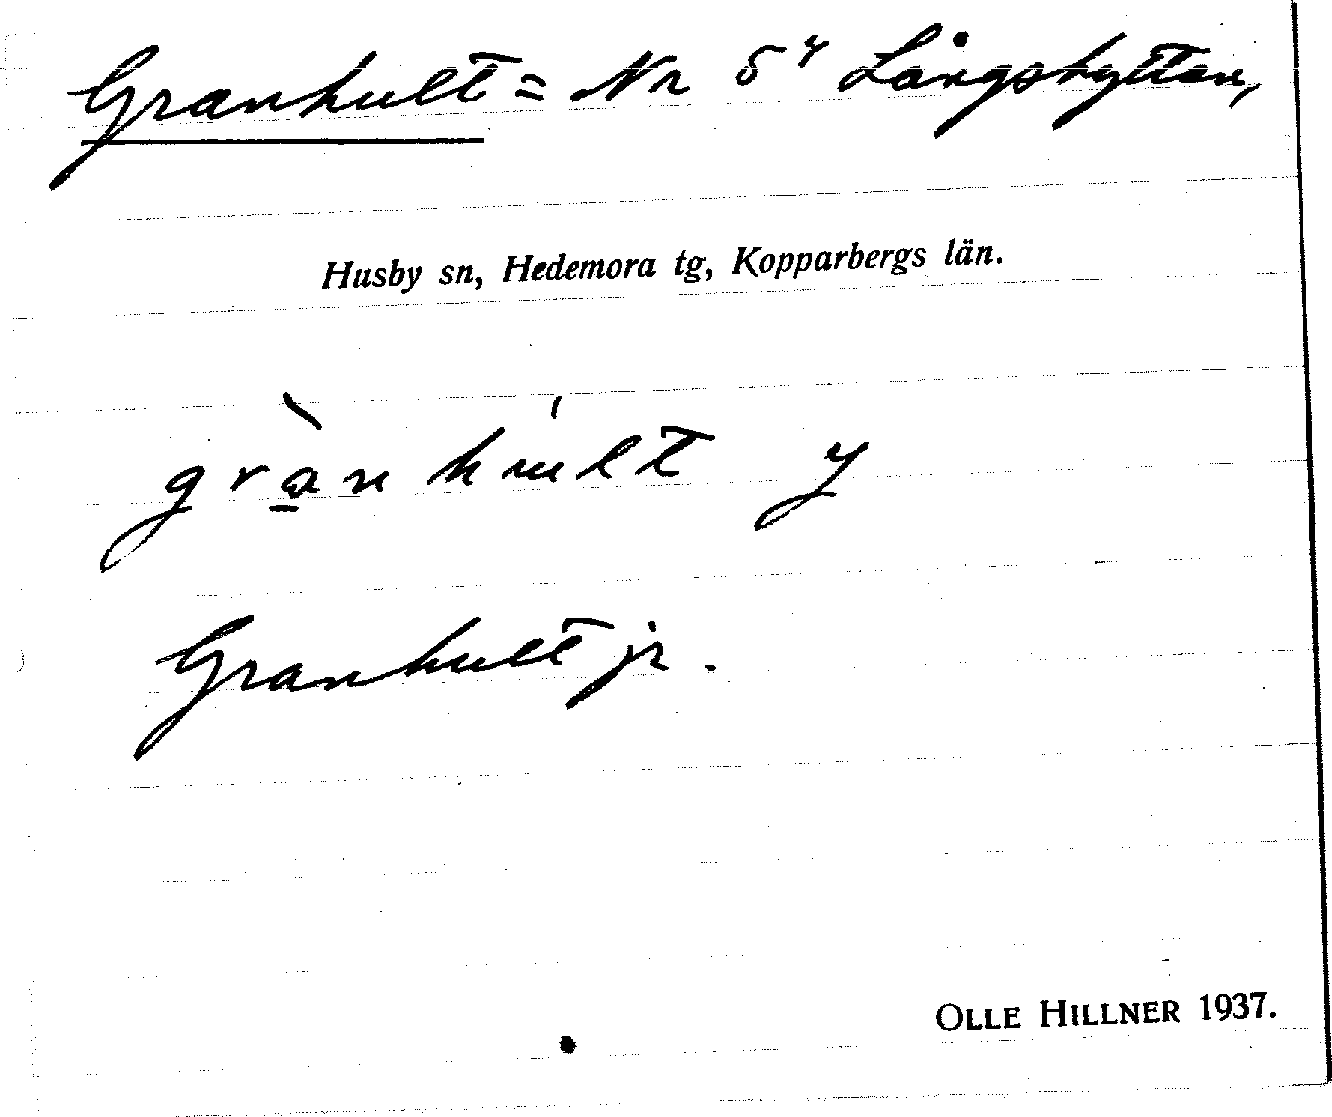 Granhult = Nr 5⁴ Långshyttan,
Husby sn, Hedemora tg, Kopparbergs län.
grà̠nhu̍lt y
Granhult jr.
OLLE HILLNER 1937.